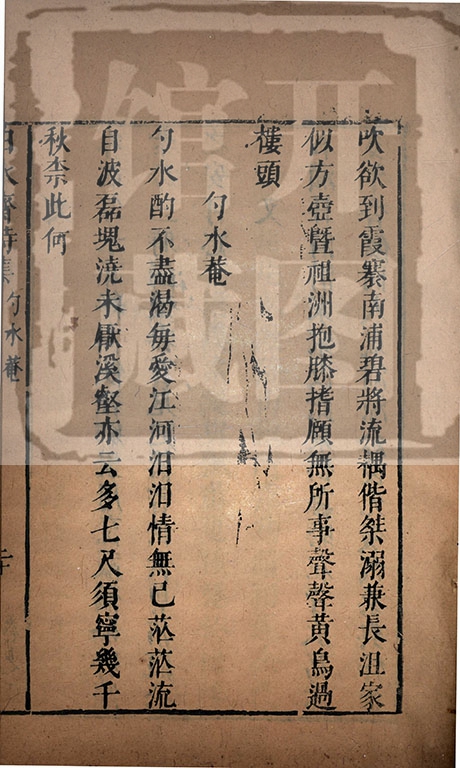 吹欲到霞褰南浦碧將流耦偕桀溺兼長沮家
似方壺曁祖洲抱膝捂頤無所事聲聲黃鳥過
樓頭
勺水菴
勺水酌不盡渴每愛江河汨汨情無已茫茫流
自波磊塊澆未厭溪壑亦云多七尺須寧幾千
秋柰此何
白水齋詩集 勺水菴
二十
開圖
館藏